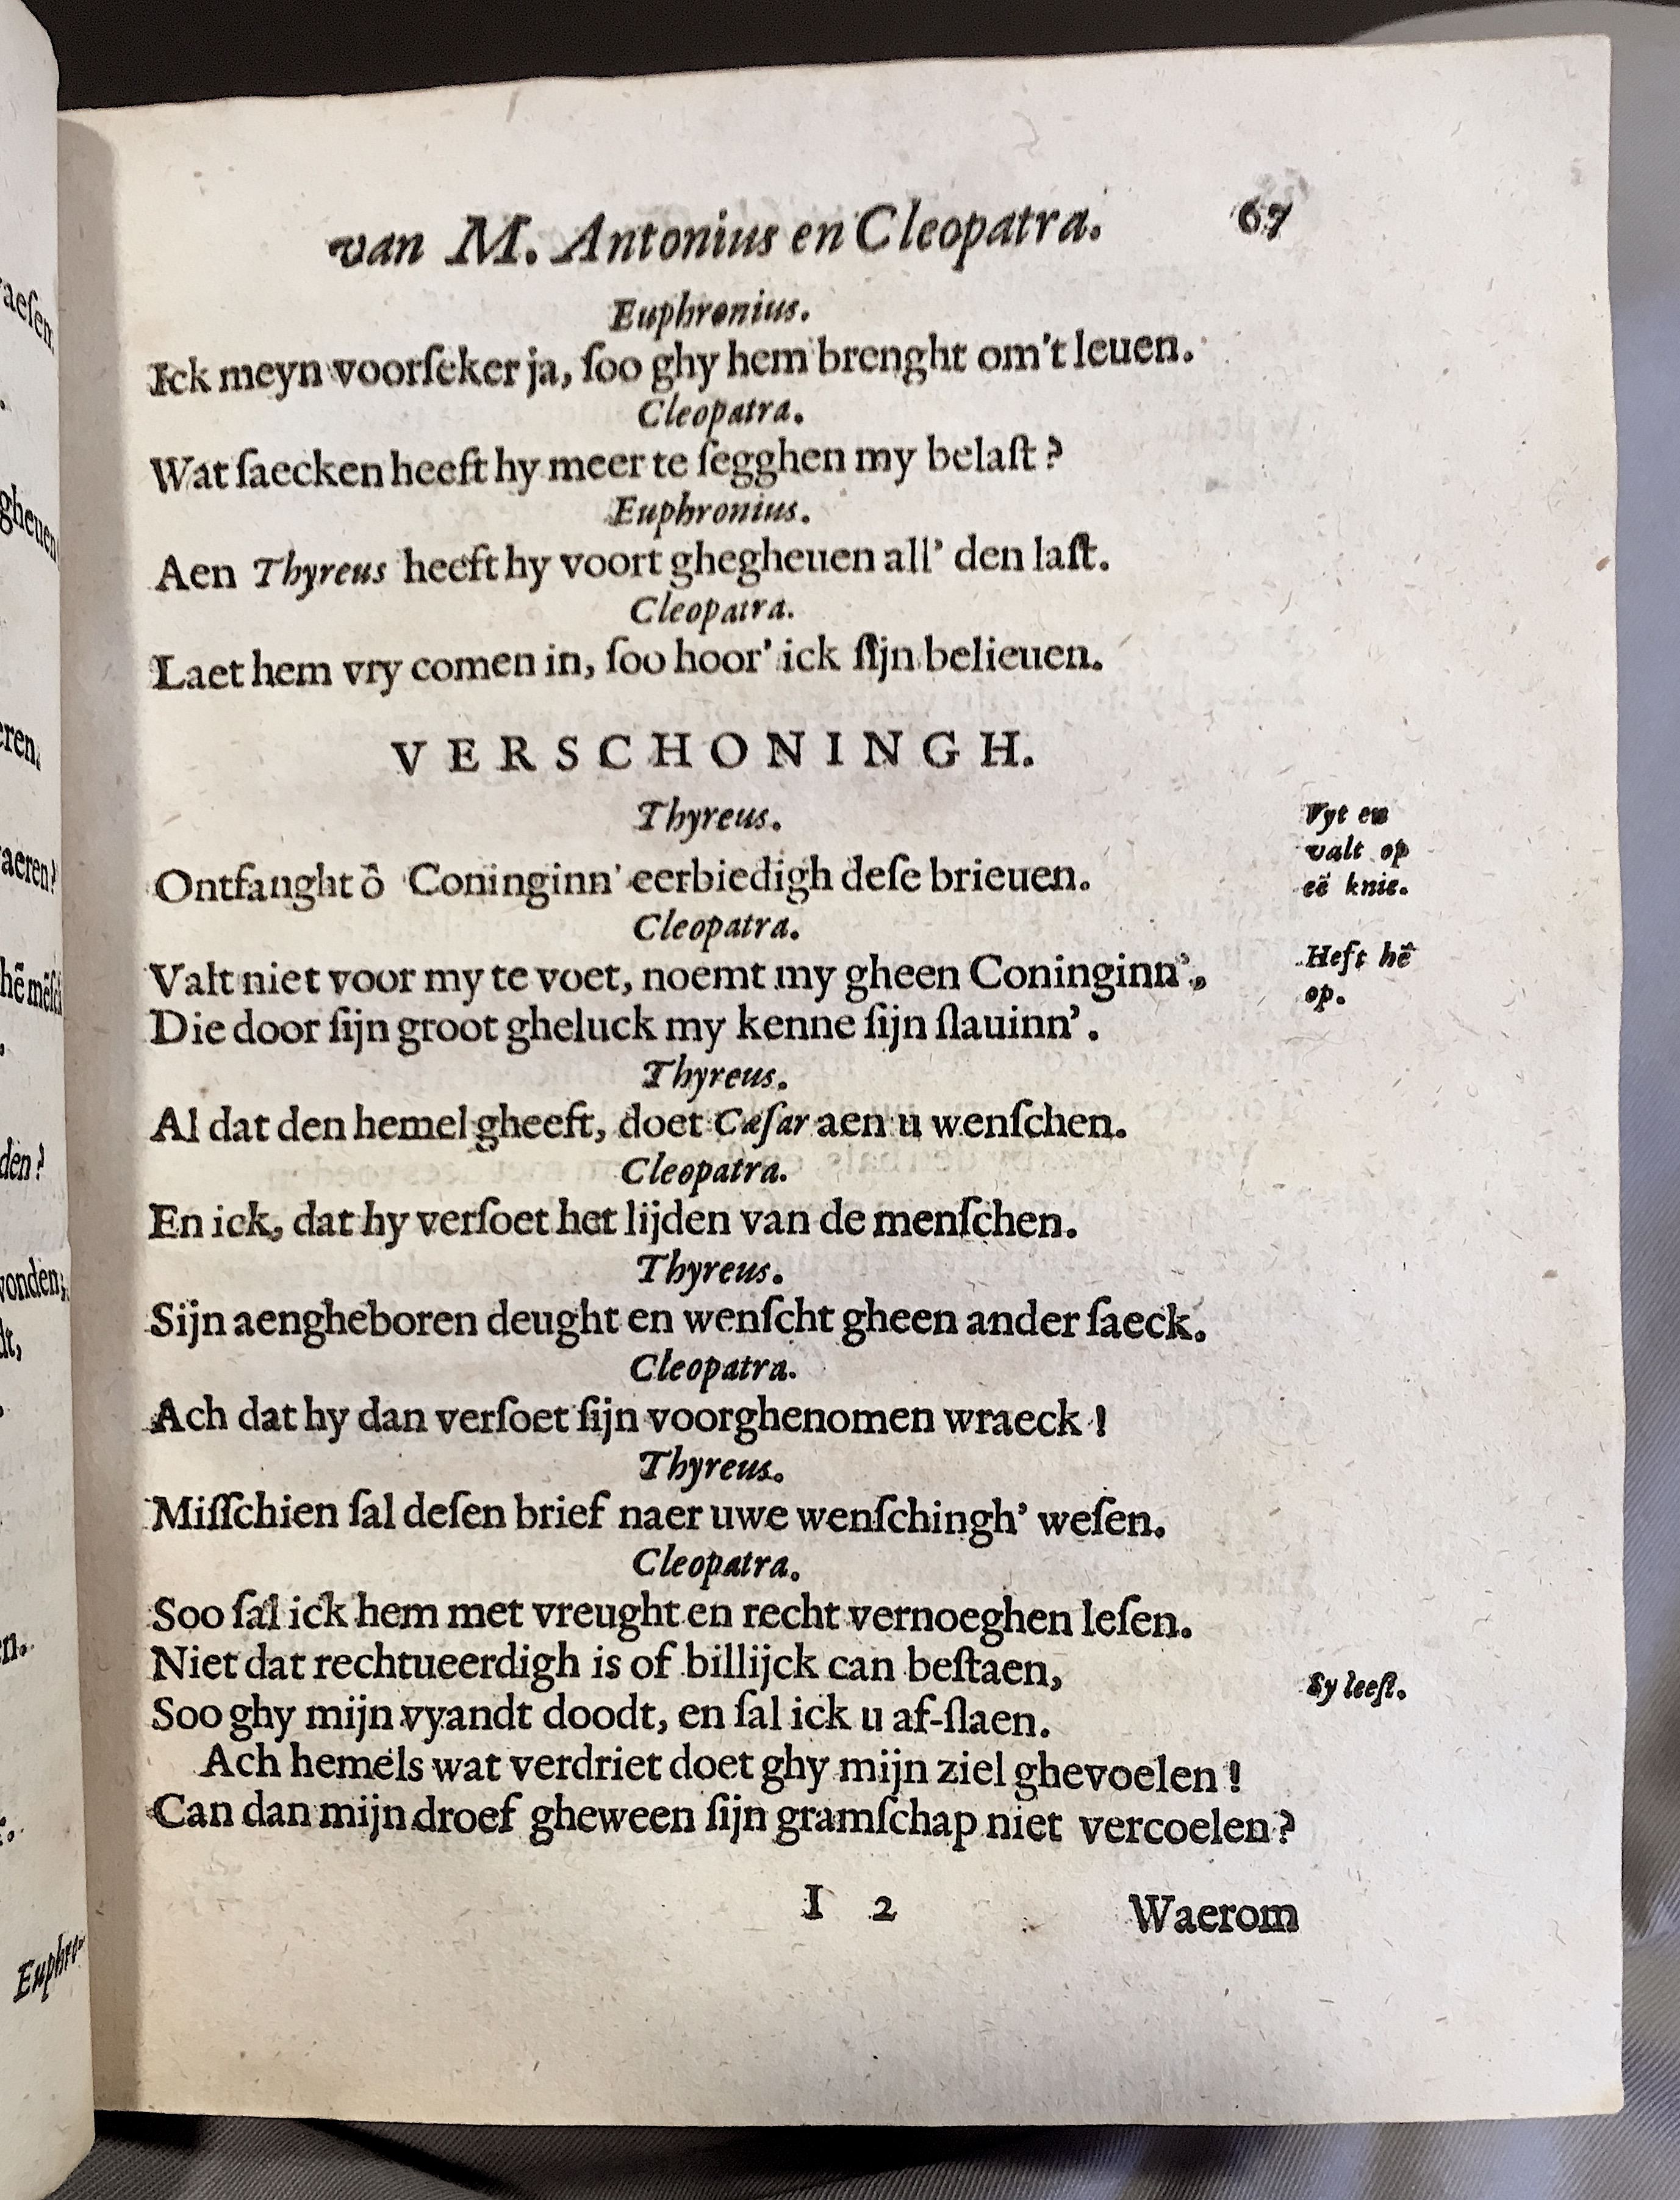 van M. Antonius en Cleopatra. 67
Euphronius.
Ick meyn voorſeker ja, ſoo ghy hem brenght om't leuen.
Cleopatra.
Wat ſaecken heeft hy meer te ſegghen my belaſt?
Euphronius.
Aen Thyreus heeft hy voort ghegheuen all’ den laſt.
Cleopatra.
Laet hem vry comen in, ſoo hoor’ ick ſijn belieuen.
VERSCHONINGH.
Thyreus.
Vyt en
valt op
eë knie.
Ontfanght ô Coninginn’ eerbiedigh deſe brieuen.
Cleopatra.
Valt niet voor my te voet, noemt my gheen Coninginn’,
Heft hē
op.
Die door ſijn groot gheluck my kenne ſijn ſlauinn’.
Thyreus.
Al dat den hemel gheeft, doet Cæſar aen u wenſchen.
Cleopatra.
En ick, dat hy verſoet het lijden van de menſchen.
Thyreus.
Sijn aengheboren deught en wenſcht gheen ander ſaeck.
Cleopatra.
Ach dat hy dan verſoet ſijn voorghenomen wraeck!
Thyreus.
Miſſchien ſal deſen brief naer uwe wenſchingh’ weſen.
Cleopatra.
Soo ſal ick hem met vreught en recht vernoeghen leſen.
Niet dat rechtueerdigh is of billijck can beſtaen,
Sy leeſt.
Soo ghy mijn vyandt doodt, en ſal ick u af-ſlaen.
Ach hemels wat verdriet doet ghy mijn ziel ghevoelen!
Can dan mijn droef gheween ſijn gramſchap niet vercoelen?
I 2 Waerom